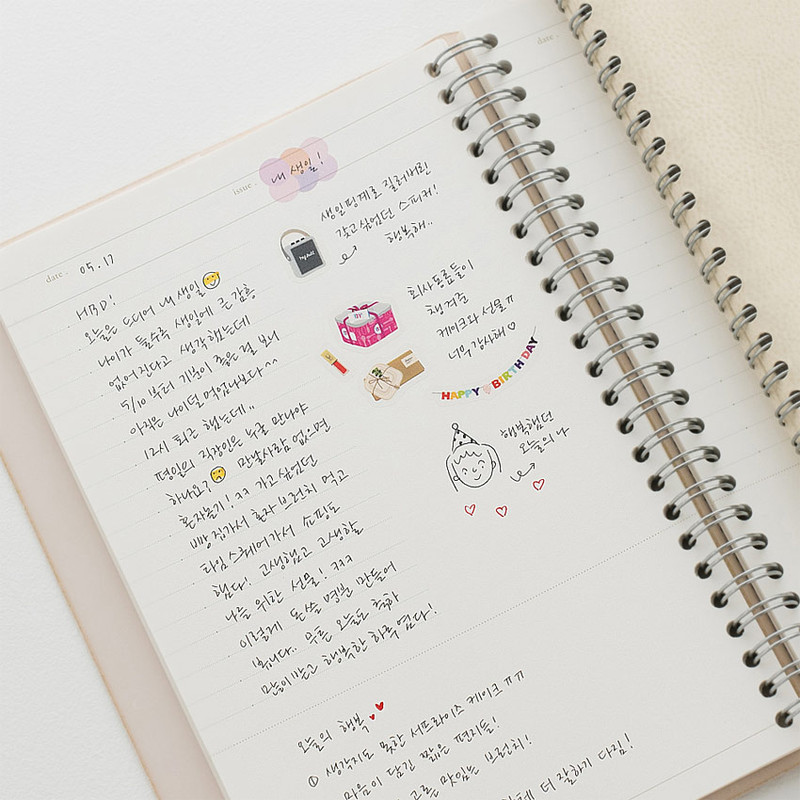 date .
issue .
내 생일!
date . 05. 17
HBD!
오늘은 드디어 내 생일
나이가 들수록 생일에 큰 감흥
없어진다고 생각했는데
5/10부터 기분이 좋은 걸 보니
아직은 나이 덜 먹었나보다^^
12시 퇴근 했는데..
평일의 직장인은 누굴 만나야
하나요? 만날사람 없으면
혼자놀기! ㅋㅋ 가고싶었던
빵집가서 혼자 브런치 먹고
타임스퀘어가서 쇼핑도
했다! 고생했고 고생할
나를 위한 선물! ㅋㅋㅋ
이렇게 돈쓸 명분 만들어
봅니다.. 무튼 오늘도 축하
많이받고 행복한 하루였다!
생일핑계로 질러버린
갖고싶었던 스피커!
행복해..
회사동료들이
챙겨준
케이크와 선물ㅠ
너무 감사해♡
HAPPY BIRTHDAY
행복했던
오늘의 나
오늘의 행복
① 생각지도 못한 서프라이즈 케이크ㅠㅠ
마음이 담긴 짧은 편지들!
고른 맛있는 브런치!
더 잘하기 다짐!